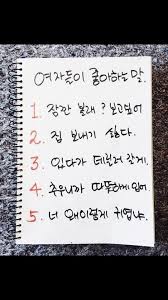 여자들이 좋아하는 말.
1. 잠깐 볼래? 보고싶어
2. 집 보내기 싫다.
3. 있다가 데릴러 갈게.
4. 추우니까 따뜻하게 입어
5. 너 왜이렇게 귀엽냐.